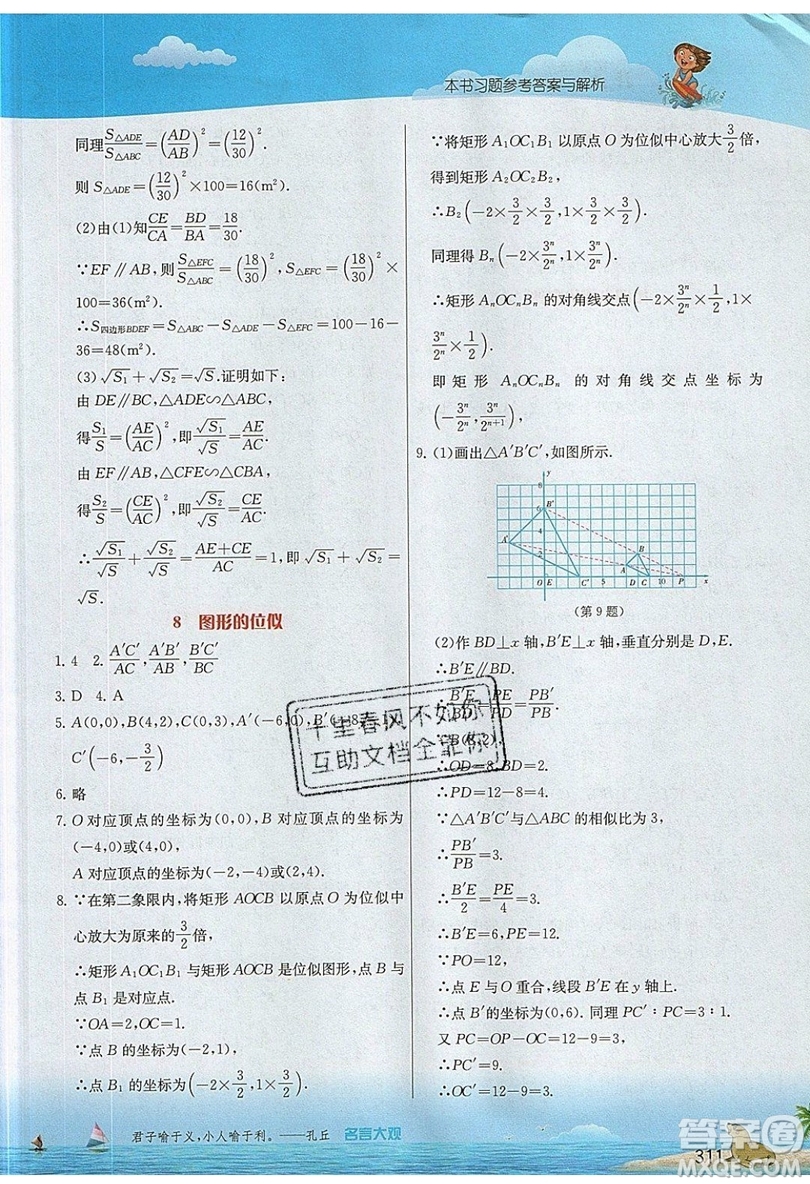 本书习题参考答案与解析
同理S△ADE/S△ABC=(AD/AB)²=(12/30)².
则 S△ADE=(12/30)²×100=16(m²).
(2)由(1)知CE/CA=BD/BA=18/30.
∵EF∥AB,则S△EFC/S△ABC=(18/30)²,S△EFC=(18/30)²×
100=36(m²).
∴S四边形BDEF=S△ABC-S△ADE-S△EFC=100-16-
36=48(m²).
(3)√S₁+√S₂=√S.证明如下:
由 DE∥BC,△ADE∽△ABC,
得S₁/S=(AE/AC)²,即√S₁/√S=AE/AC.
由 EF∥AB,△CFE∽△CBA,
得S₂/S=(CE/AC)²,即√S₂/√S=CE/AC.
∴√S₁/√S+√S₂/√S=(AE+CE)/AC=1,即√S₁+√S₂=
√S.
8 图形的位似
1. 4 2. A′C′/AC,A′B′/AB,B′C′/BC
3. D 4. A
5. A(0,0),B(4,2),C(0,3),A′(-6,0),B′(-8,-1),
C′(-6,-3/2)
6. 略
7. O 对应顶点的坐标为(0,0),B 对应顶点的坐标为
(-4,0)或(4,0),
A 对应顶点的坐标为(-2,-4)或(2,4).
8. ∵在第二象限内,将矩形 AOCB 以原点 O 为位似中
心放大为原来的3/2倍,
∴矩形 A₁OC₁B₁ 与矩形 AOCB 是位似图形,点 B 与
点 B₁ 是对应点.
∵OA=2,OC=1.
∵点 B 的坐标为(-2,1),
∴点 B₁ 的坐标为(-2×3/2,1×3/2).
∵将矩形 A₁OC₁B₁ 以原点 O 为位似中心放大3/2倍,
得到矩形 A₂OC₂B₂,
∴B₂(-2×3/2×3/2,1×3/2×3/2).
同理得 Bₙ(-2×3ⁿ/2ⁿ,1×3ⁿ/2ⁿ).
∴矩形 AₙOCₙBₙ 的对角线交点(-2×3ⁿ/2ⁿ×1/2,1×
3ⁿ/2ⁿ×1/2).
即矩形 AₙOCₙBₙ 的对角线交点坐标为
(-3ⁿ/2ⁿ,3ⁿ/2ⁿ⁺¹),
9. (1)画出△A′B′C′,如图所示.
y
8
6 B′
4
A′
2 A B
O E C′ 5 D C 10 P x
(第 9 题)
(2)作 BD⊥x 轴,B′E⊥x 轴,垂直分别是 D,E.
∴B′E∥BD.
∴B′E/BD=PE/PD=PB′/PB.
∵B(8,2).
∴OD=8.
∴PD=12-8=4.
∵△A′B′C′与△ABC 的相似比为 3,
∴PB′/PB=3.
∴B′E/2=PE/4=3.
∴B′E=6,PE=12.
∵PO=12,
∴点 E与 O 重合,线段 B′E 在 y 轴上.
∴点 B′的坐标为(0,6). 同理 PC′∶PC=3∶1.
又 PC=OP-OC=12-9=3,
∴PC′=9.
∴OC′=12-9=3.
千里春风不如你
互助文档全靠你
君子喻于义,小人喻于利。——孔丘 名言大观
311
答案圈
MXQE.COM